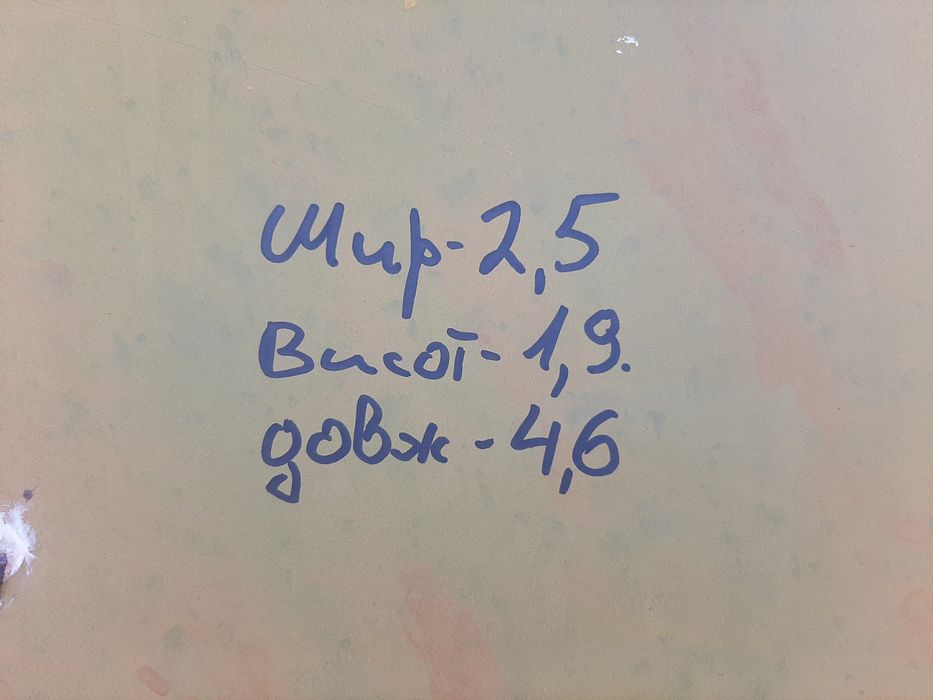 Шир- 2,5
Висот- 1,9.
довж - 4,6